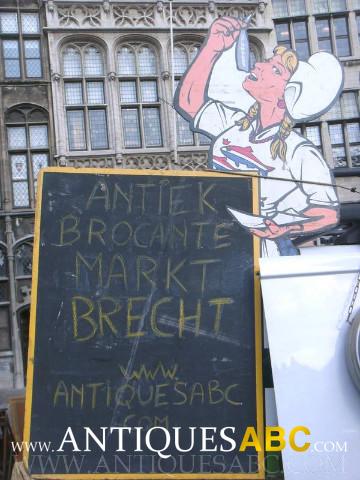 ANTIEK
BROCANTE
MARKT
BRECHT
WWW.
ANTIQUESABC
.COM
www.ANTIQUESABC.com
www.ANTIQUESABC.com